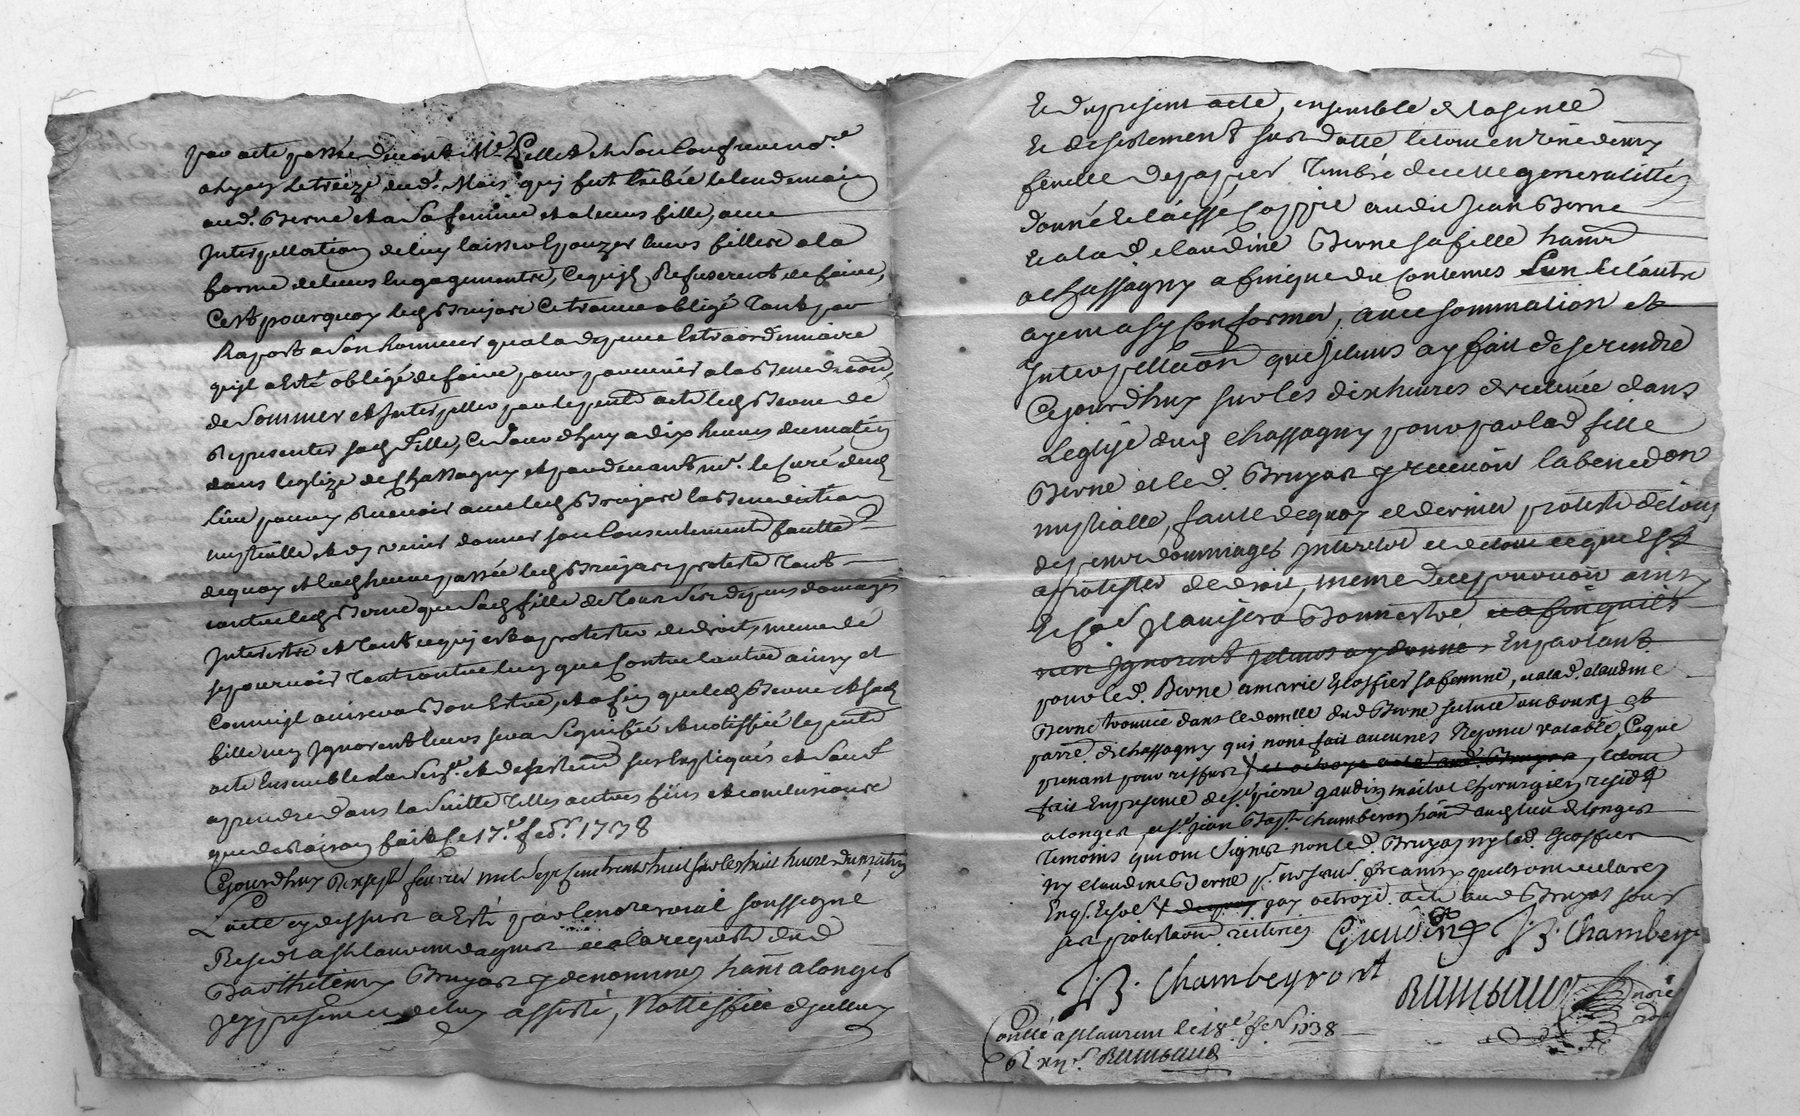 par acte passé devant Me Pellet et son Confrere nore
a Lyon le treize dud. Mois, qui fut Exibée le lendemain
aud. Berne et a Sa femme et a leurs fille, avec
Interpellation de luy laisser Epouzer leurs fillere a la
forme de leurs Engagementre, Ce quils Refuserent de faire,
C'est pourquoy led. Brujare Ce trouve obligé Tant par
Raport a Son honneur qua la depence Extraordinaire
quil a Esté obligé de faire pour parvenir a la Benediction,
de Sommer et Interpeller par le pent acte led. Berne de
Representer sad. Fille, Ce Jour dhuy a dix heures du matin
dans leglize de Chassagny et par devant mr. le Curé dud.
lieu pour y Recevoir avec led. Brujare la Benediction
nuptialle et dy venir donner son Consentement fautte
de quoy et lad. heure passée led. Brujare proteste Tant
contre led. Berne que Sad. fille de Tous Ses depens domages
Interestre et Tout ce quy est a protester de droit, meme de
se pourvoir Tant contre lun que Contre lautre ainsy et
Comm'il avisera Bon Estre, et afin que led. Berne et sad.
fille nen Ignorent leurs sera Signifiée et nottiffiée le pent
acte Ensemble la Sus. et desistement sus Expliqués et Sauf
a prendre dans la Suitte Telles autres fins et conclusionre
que de Raison fait le 17.e fevr. 1738
Cejourdhuy dixsept fevrier mil sept cent trente huit sur les huit heures du matin
L'acte cy dessus a Esté par le notre roial soussigné
Resident a St laurent dagniere et a la requeste dud.
Barthelemy Bruyas y denommé, hant a longes
Jcy present et de luy assisté, Nottiffiée
Et du present acte, ensemble
Et desistement sus datté le tout en
feuille de papier Timbré de cette generalitté
donné et laissé Coppie audit Jean Berne
et a lad. claudine Berne sa fille hant
a Chassagny a fin que du Contenus L'un et l'autre
ayent a sy Conformer, avec sommation et
Interpellaon que je leurs ay fait de se rendre
Cejourdhuy sur les dix heures dans
L'eglise dud. Chassagny pour par lad. fille
Berne et led. Bruyas y recevoir la benedon
nuptialle, faute de quoy ce dernier proteste de tous
depens dommages Interest et de tout ce que Est
a protester de droit, meme de ce pourvoir ainsy
Et Co Il avisera Bon Estre et a fin quils
nen Ignorent je leurs ay donné En parlant
pour led. Berne a marie Escoffier sa femme, et a lad. claudine
Berne trouvée dans le domille dud. Berne situé au bourg et
parre. de chassagny qui nont fait aucunes Reponce valable, Ce que
prenant pour reffus et octroye acte aud. Bruyas, le tout
fait En presence de sr. pierre gaudin maitre chirurgien resid.
a longes, et sr. jean Bapt. chamberon hant aud. lieu de longes
Temoins qui ont Signer non led. Bruyas ny lad. Escoffier
ny claudine Berne p. ne scav. Ecrire ainsy quils ont declarez
Enqs. et jay octroyé acte aud. Bruyas sous
ses protestaon
Gaudin JB. Chambey
JB. Chambeyront Raimbaud
nore
Conllé a St laurent le 18.e fev. 1738
Raimbaud